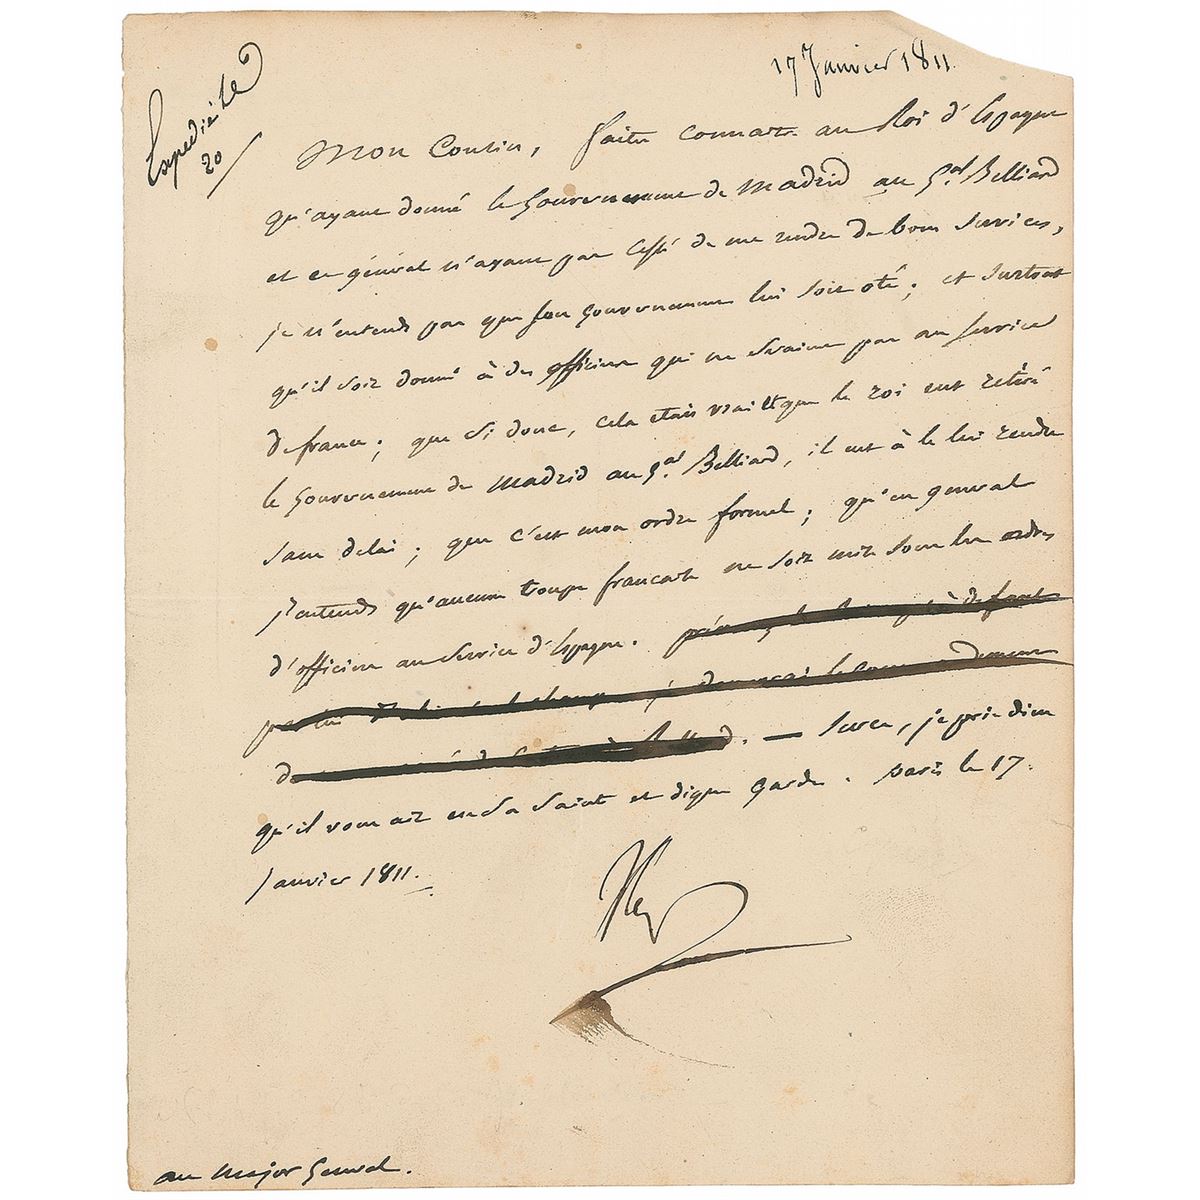 17 Janvier 1811.
Expédié le
20
Mon Cousin, faites connaitre au Roi d'Espagne
qu'ayant donné le Gouvernement de Madrid au G.al Belliard
et ce général n'ayant pas cessé de me rendre de bons services,
je n'entends pas que son Gouvernement lui soit oté; et surtout
qu'il soit donné à des officiers qui ne seraient pas au service
de france; que si donc, cela était vrai et que le roi eut retiré
le Gouvernement de Madrid au G.al Belliard, il eut à le lui rendre
sans delai; que c'est mon ordre formel; qu'en general
j'entends qu'aucune troupe francaise ne soit mise sous les ordres
d'officiers au service d'Espagne.
— Sur ce, je prie dieu
qu'il vous ait en sa sainte et digne garde. Paris le 17.
Janvier 1811.
Nap
au Major General.